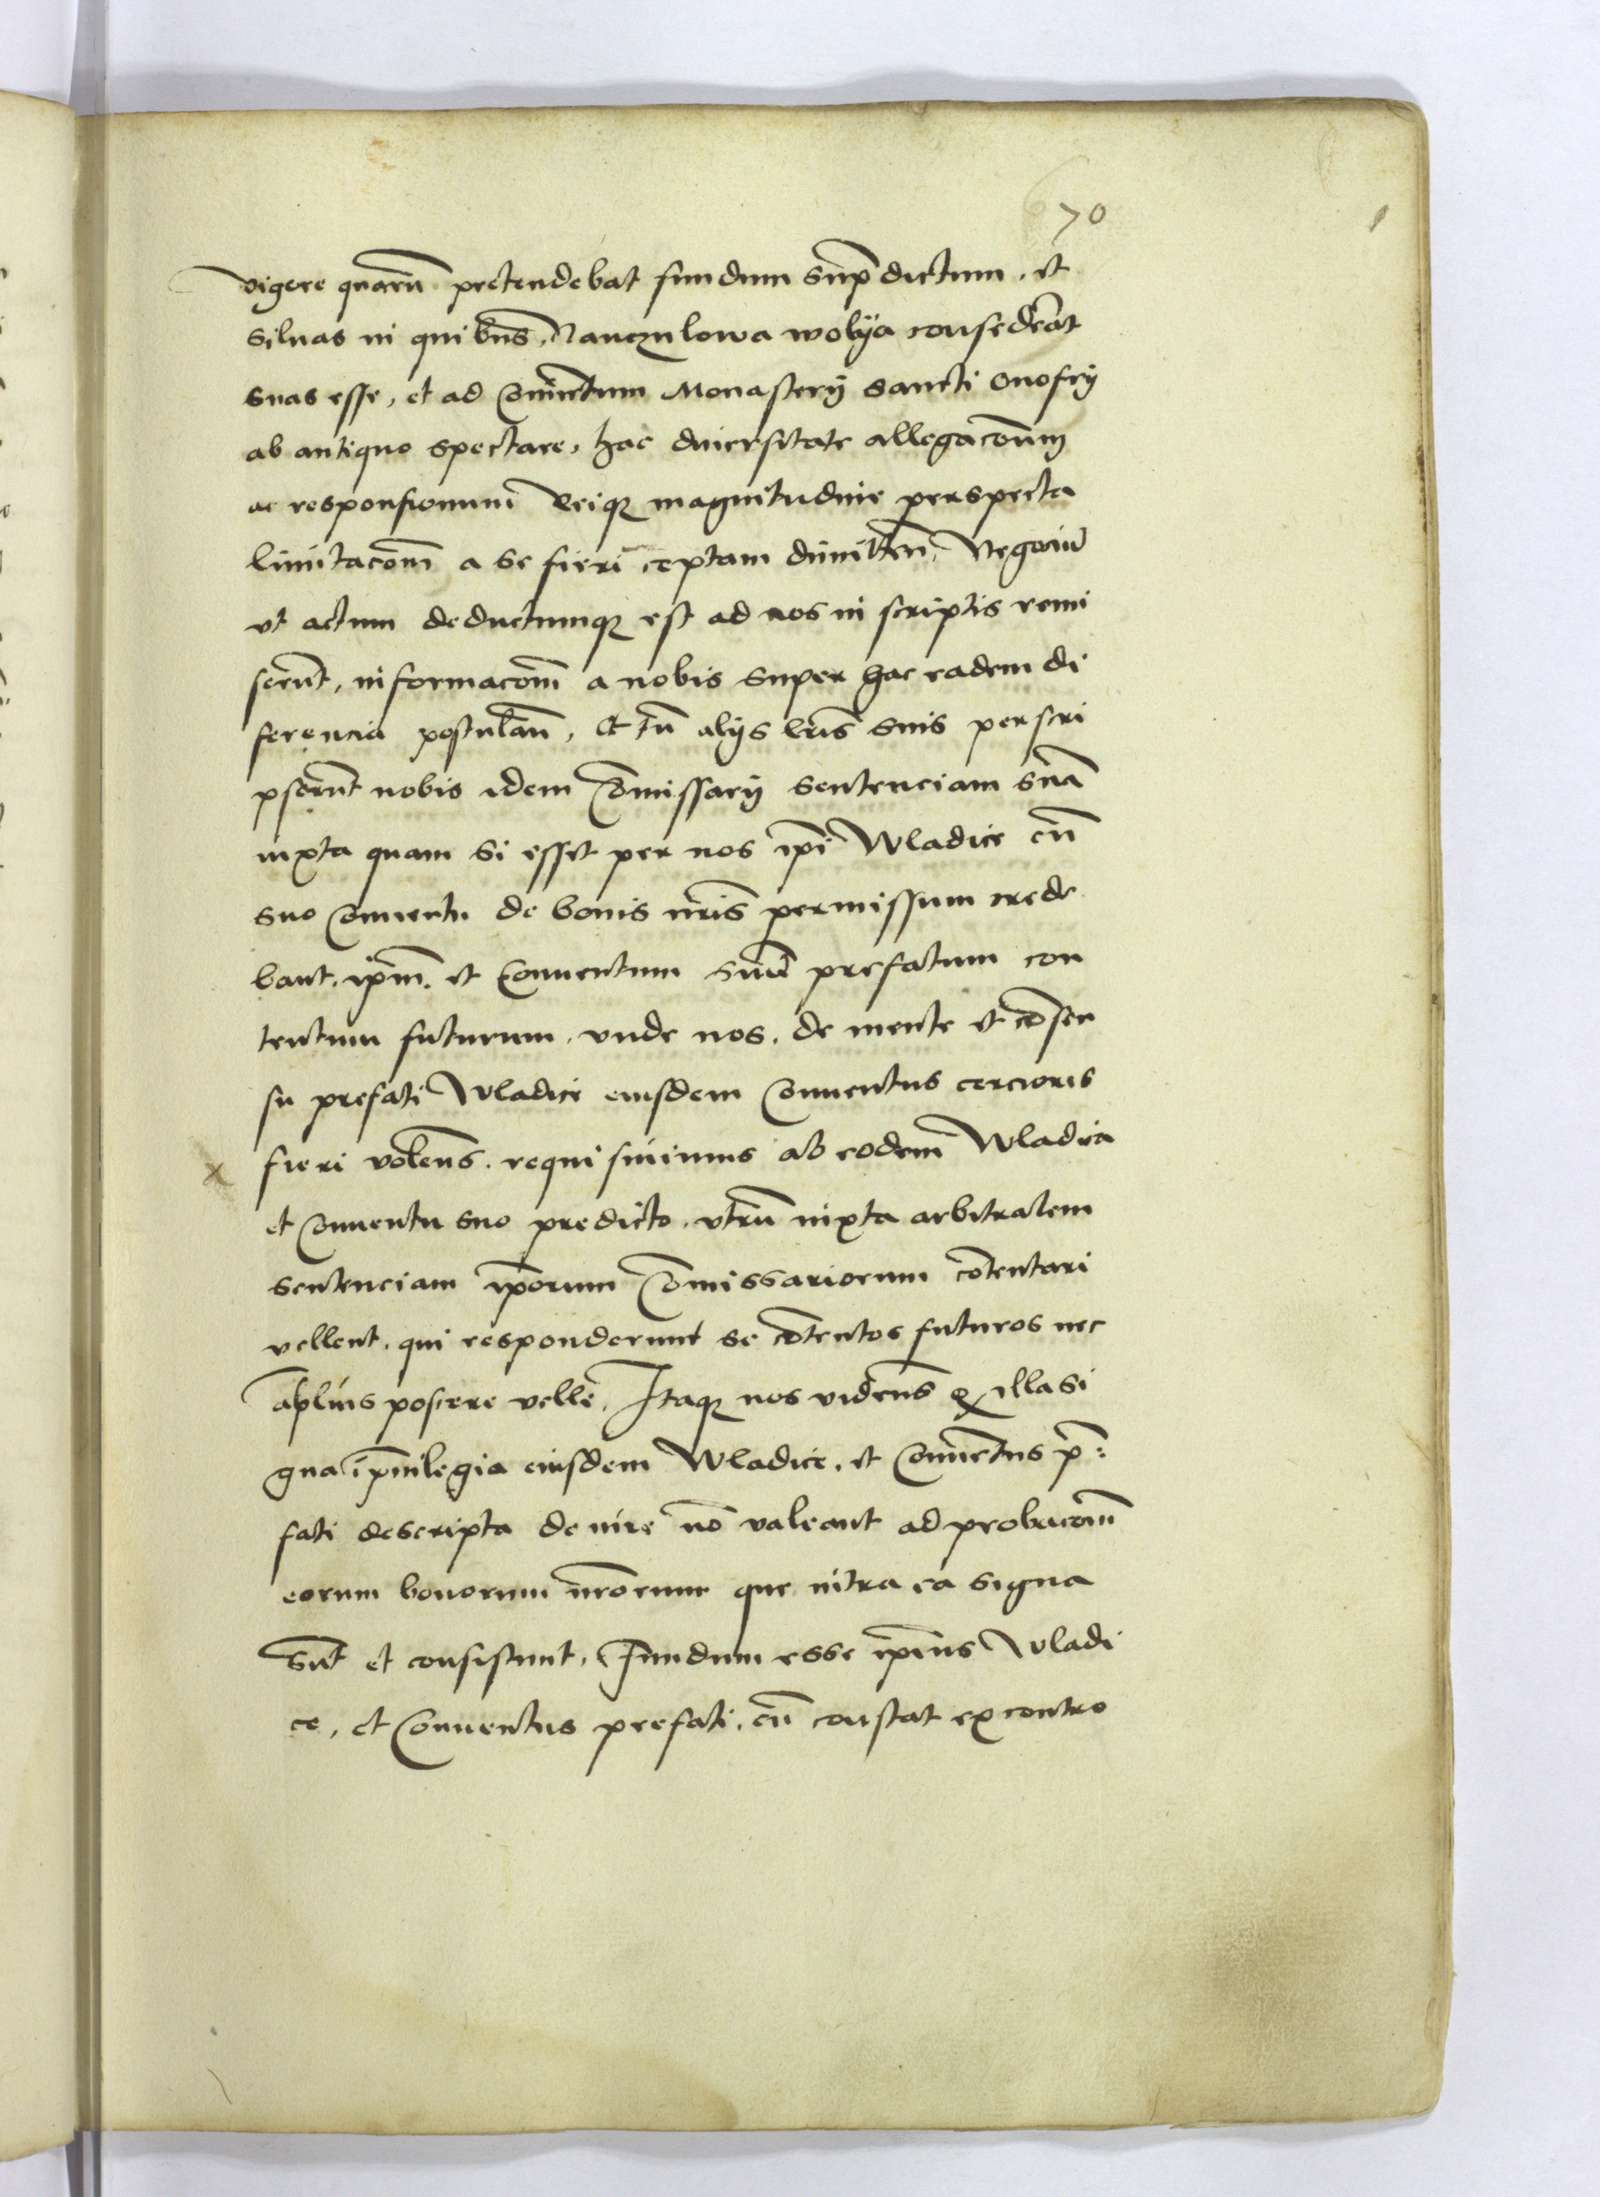 70
vigore quarū pretendebat fundum suṗdictum, et
siluas in quibus Nanczulowa wolya consederāt
suas esse, et ad Cōuentum Monasterij sancti Onofrij
ab antiquo spectare, hac diuersitate allegacōnum
ac responsionum reiq magnitudine perspecta
limitacōnē a se fieri ceptam dimittēn, Negociū
vt actum deductumq est ad nos in scriptis remi
serūt, informacōnē a nobis super hac eadem di
ferencia postulān, Et tū alijs lr̄is suis perscri
pserūt nobis idem Cōmissarij sentenciam suā
iuxta quam si esset per nos ip̄i Wladice cū
suo Conuentu de bonis nr̄is permissum crede
bant, ip̄m et Conuentum suū prefatum con
tentum futurum, vnde nos, de mente et cōsen
su prefati Wladice eiusdem Conuentus cerciores
fieri volen̄s, requisiuimus ab eodem Wladica
et Conuentu suo predicto, vtrū iuxta arbitralem
sentenciam ip̄orum Cōmissariorum cōtentari
vellent, qui responderunt se cōtentos futuros nec
āplius poscere velle, Itaq nos viden̄s q illa si
gna ī priuilegia eiusdem Wladice, et Cōuentus p̄:
fati descripta de iure nō valeant ad probacōnē
eorum bonorum nr̄orum que citra ea signa
sūt et consistunt, Fundum esse ip̄ius Wladi
ce, et Conuentus prefati, cū constat ex contro